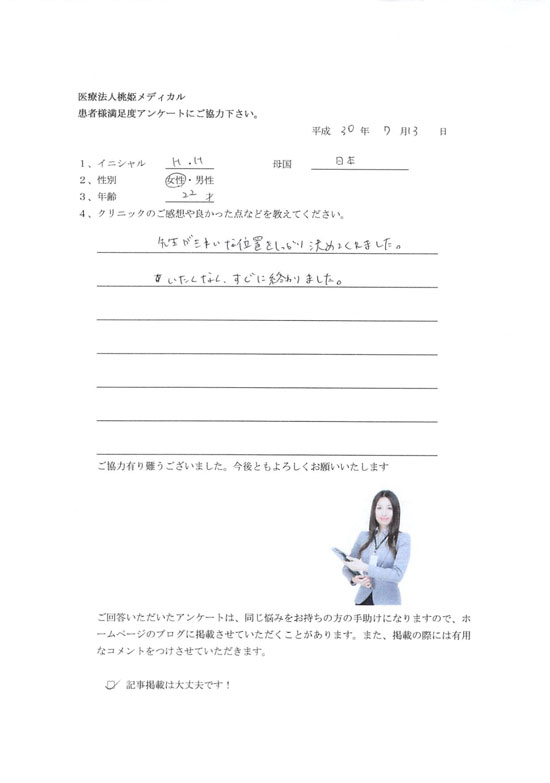 医療法人桃姫メディカル
患者様満足度アンケートにご協力下さい。
平成 30 年 7 月 13 日
1、イニシャル H.H 母国 日本
2、性別 女性・男性
3、年齢 22 才
4、クリニックのご感想や良かった点などを教えてください。
先生がきれいな位置をしっかり決めてくれました。
いたくなく、すぐに終わりました。
ご協力有り難うございました。今後ともよろしくお願いいたします
ご回答いただいたアンケートは、同じ悩みをお持ちの方の手助けになりますので、ホ
ームページのブログに掲載させていただくことがあります。また、掲載の際には有用
なコメントをつけさせていただきます。
記事掲載は大丈夫です！